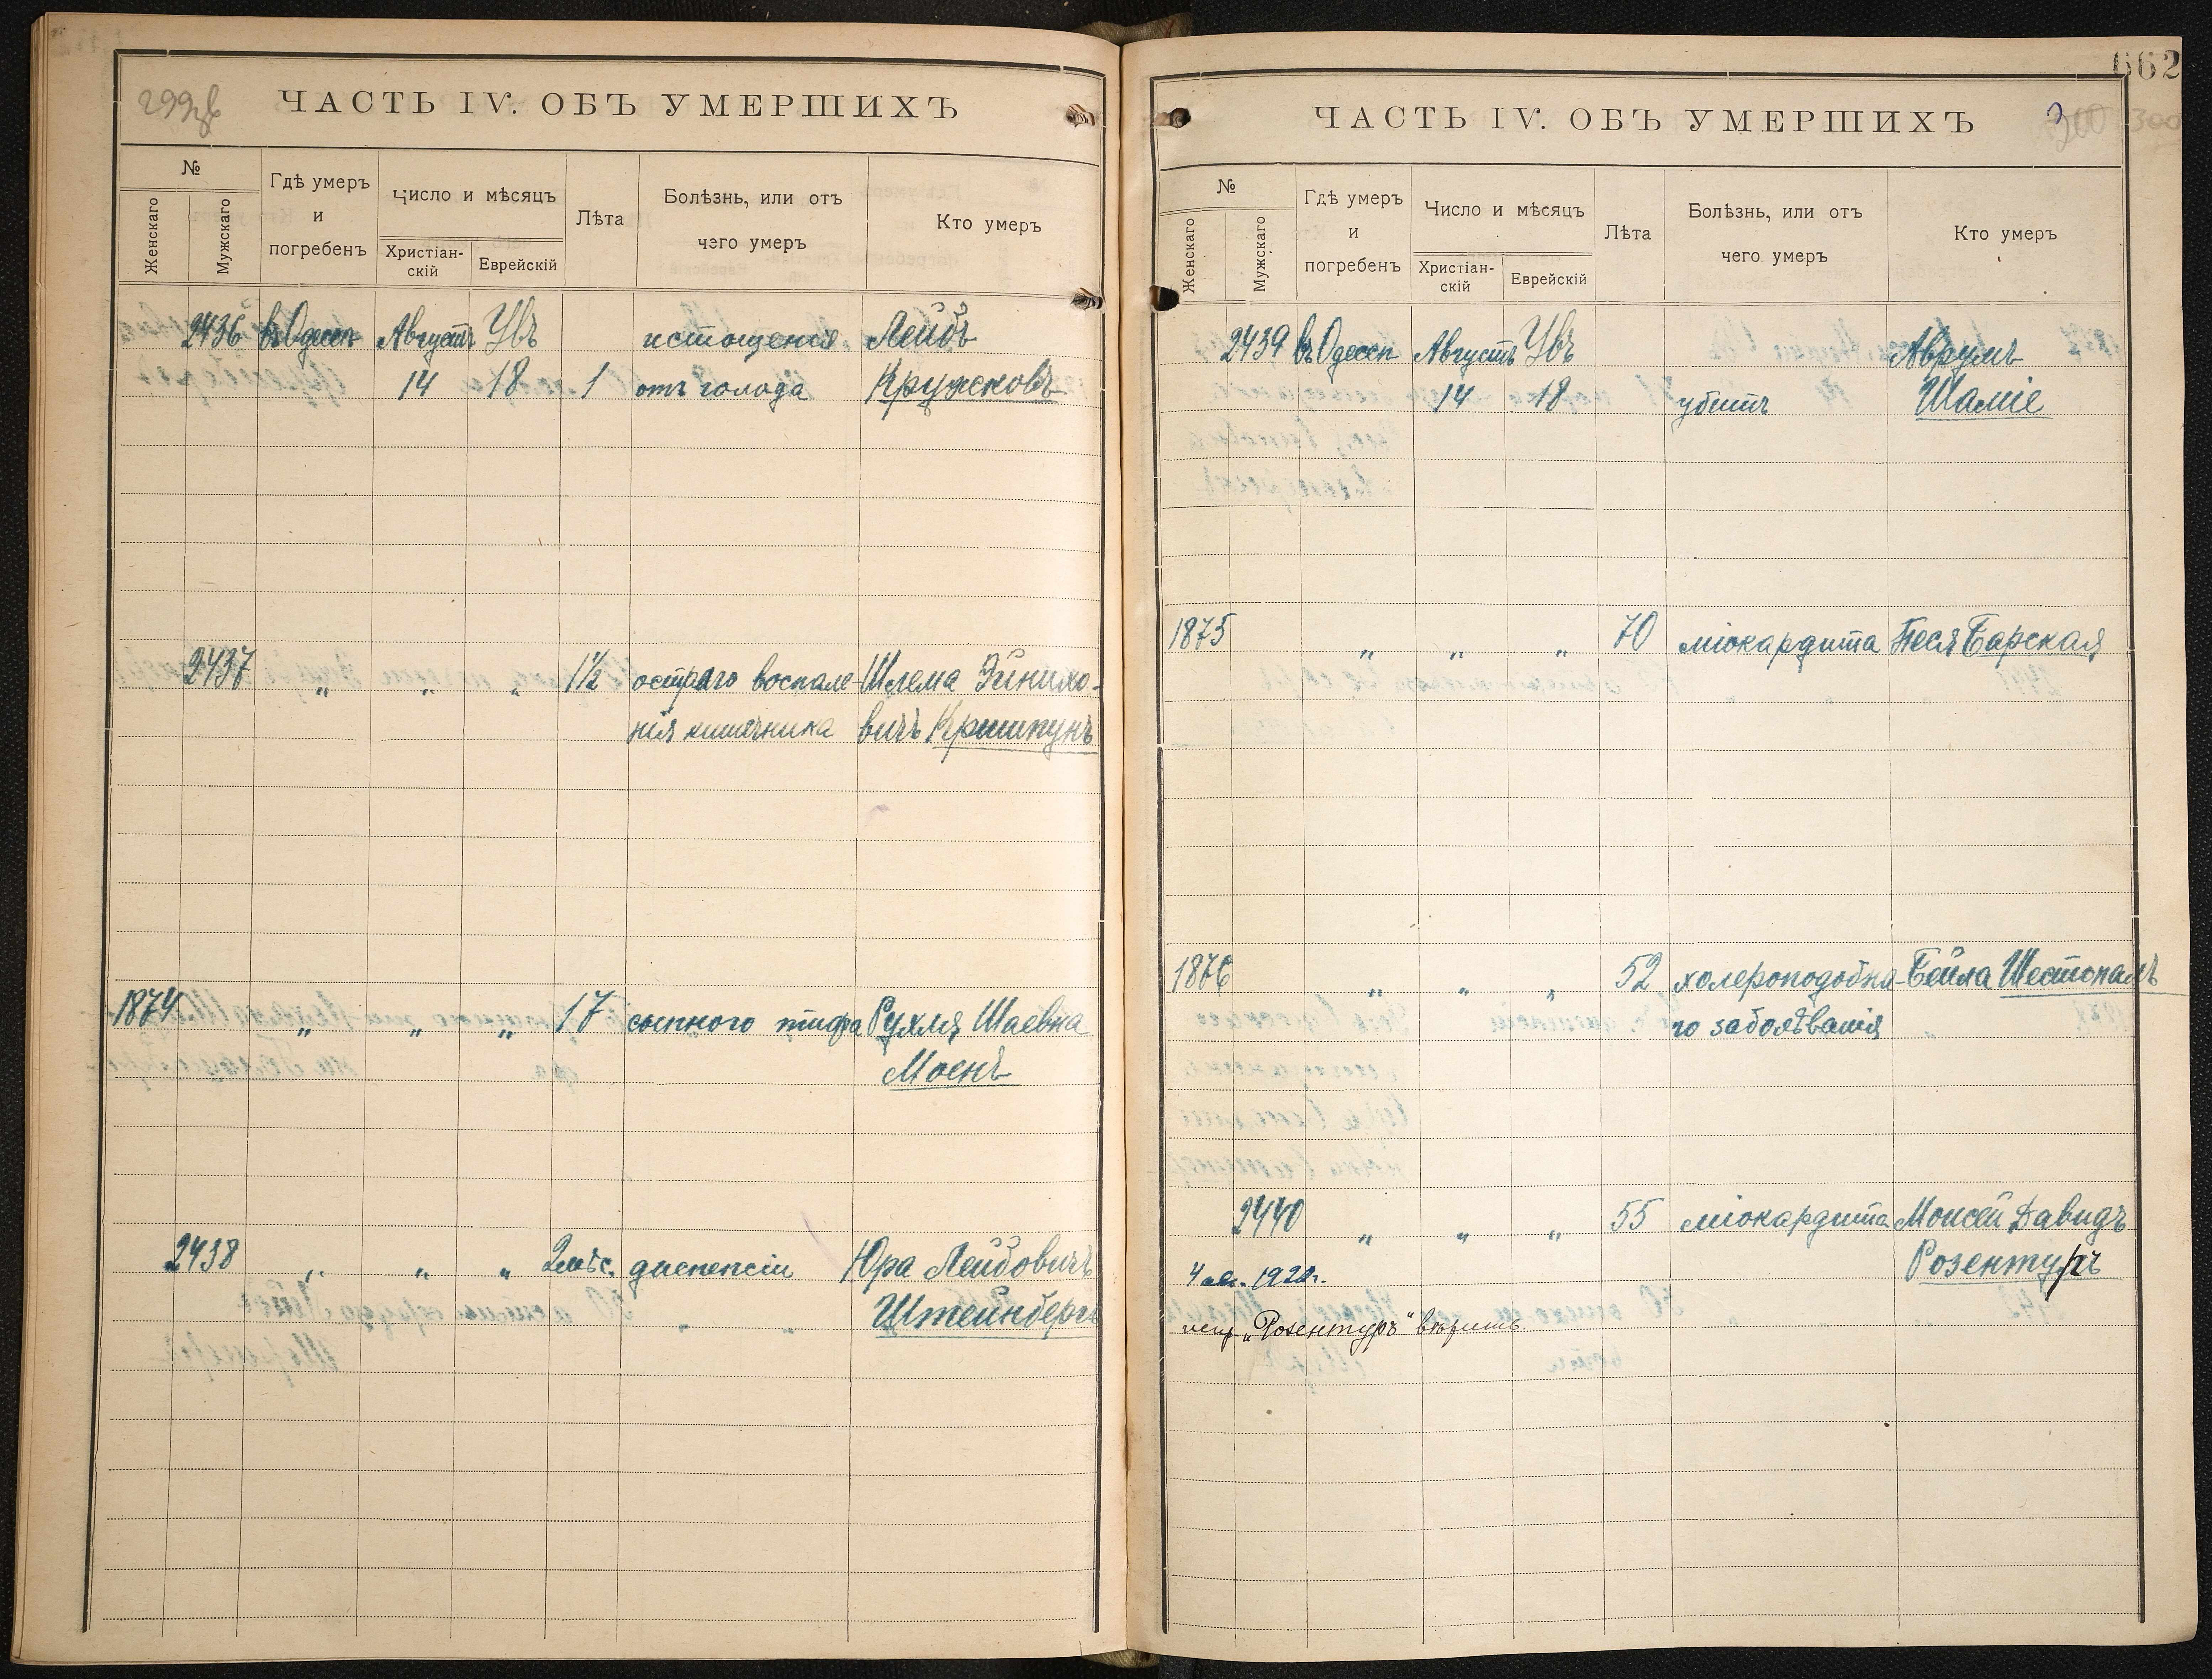 299об
ЧАСТЬ IV. ОБЪ УМЕРШИХЪ
№
Женскаго
Мужскаго
Гдѣ умеръ
и
погребенъ
Число и мѣсяцъ
Христіан-
скій
Еврейскій
Лѣта
Болѣзнь, или отъ
чего умеръ
Кто умеръ
2436 въ Одессѣ Августъ Убъ истощенія Лейбъ
14 18 1 отъ голода Кружковъ
2437 „ „ „ 1½ остраго воспале- Шлема Эйнихо-
нія кишечника вичъ Кришпунъ
1874 „ „ „ 17 сыпного тифа Рухля Шаевна
Моснъ
2438 „ „ „ 2 мѣс. диспепсіи Юра Лейбовичъ
Штейнбергъ
662
ЧАСТЬ IV. ОБЪ УМЕРШИХЪ
300 300
№
Женскаго
Мужскаго
Гдѣ умеръ
и
погребенъ
Число и мѣсяцъ
Христіан-
скій
Еврейскій
Лѣта
Болѣзнь, или отъ
чего умеръ
Кто умеръ
2439 въ Одессѣ Августъ Убъ Аврумъ
14 18 убитъ Шаміе
1875 „ „ „ 70 міокардита Песя Барская
1876 „ „ „ 52 холероподобна- Бейла Шестопалъ
го заболѣванія
2440 „ „ „ 55 міокардита Моисей Давидъ
Розентуръ
4
испр. „Розентуръ" вѣрить